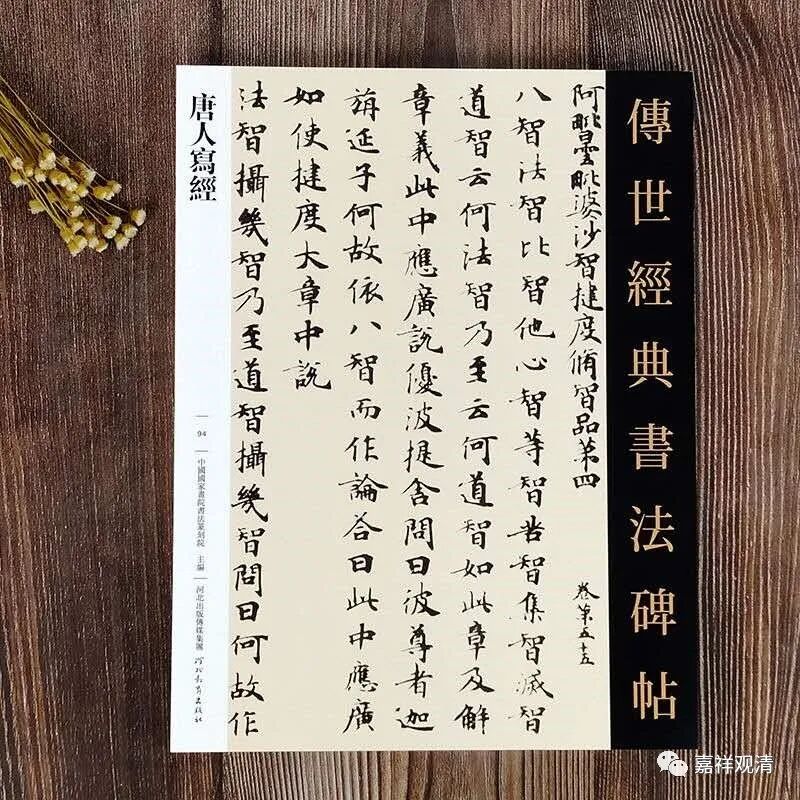 傳世經典書法碑帖
阿毗曇毗婆沙智揵度脩智品第四 卷第五十五
八智法智比智他心智等智苦智集智滅智
道智云何法智乃至云何道智如此章及解
章義此中應廣說優波提舍問曰彼尊者迦
旃延子何故依八智而作論荅曰此中應廣
如使揵度大章中說
法智攝幾智乃至道智攝幾智問曰何故作
唐人寫經
94
中國國家畫院書法篆刻院 主編
河北出版傳媒集團 河北教育出版社
嘉祥观清